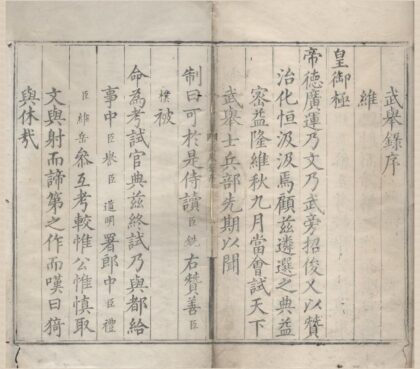 武舉錄序
維
皇御極
帝德廣運乃文乃武旁招俊乂以贊
治化恒汲汲焉顧茲遴選之典益
密益隆維秋九月當會試天下
武舉士兵部先期以聞
制曰可於是侍讀臣銑右贊善臣
樸被
命為考試官典茲終試乃與都給
事中臣道明署郎中臣禮
臣維岳叅互考較惟公惟慎取
文與射而諦第之作而嘆曰猗
與休哉